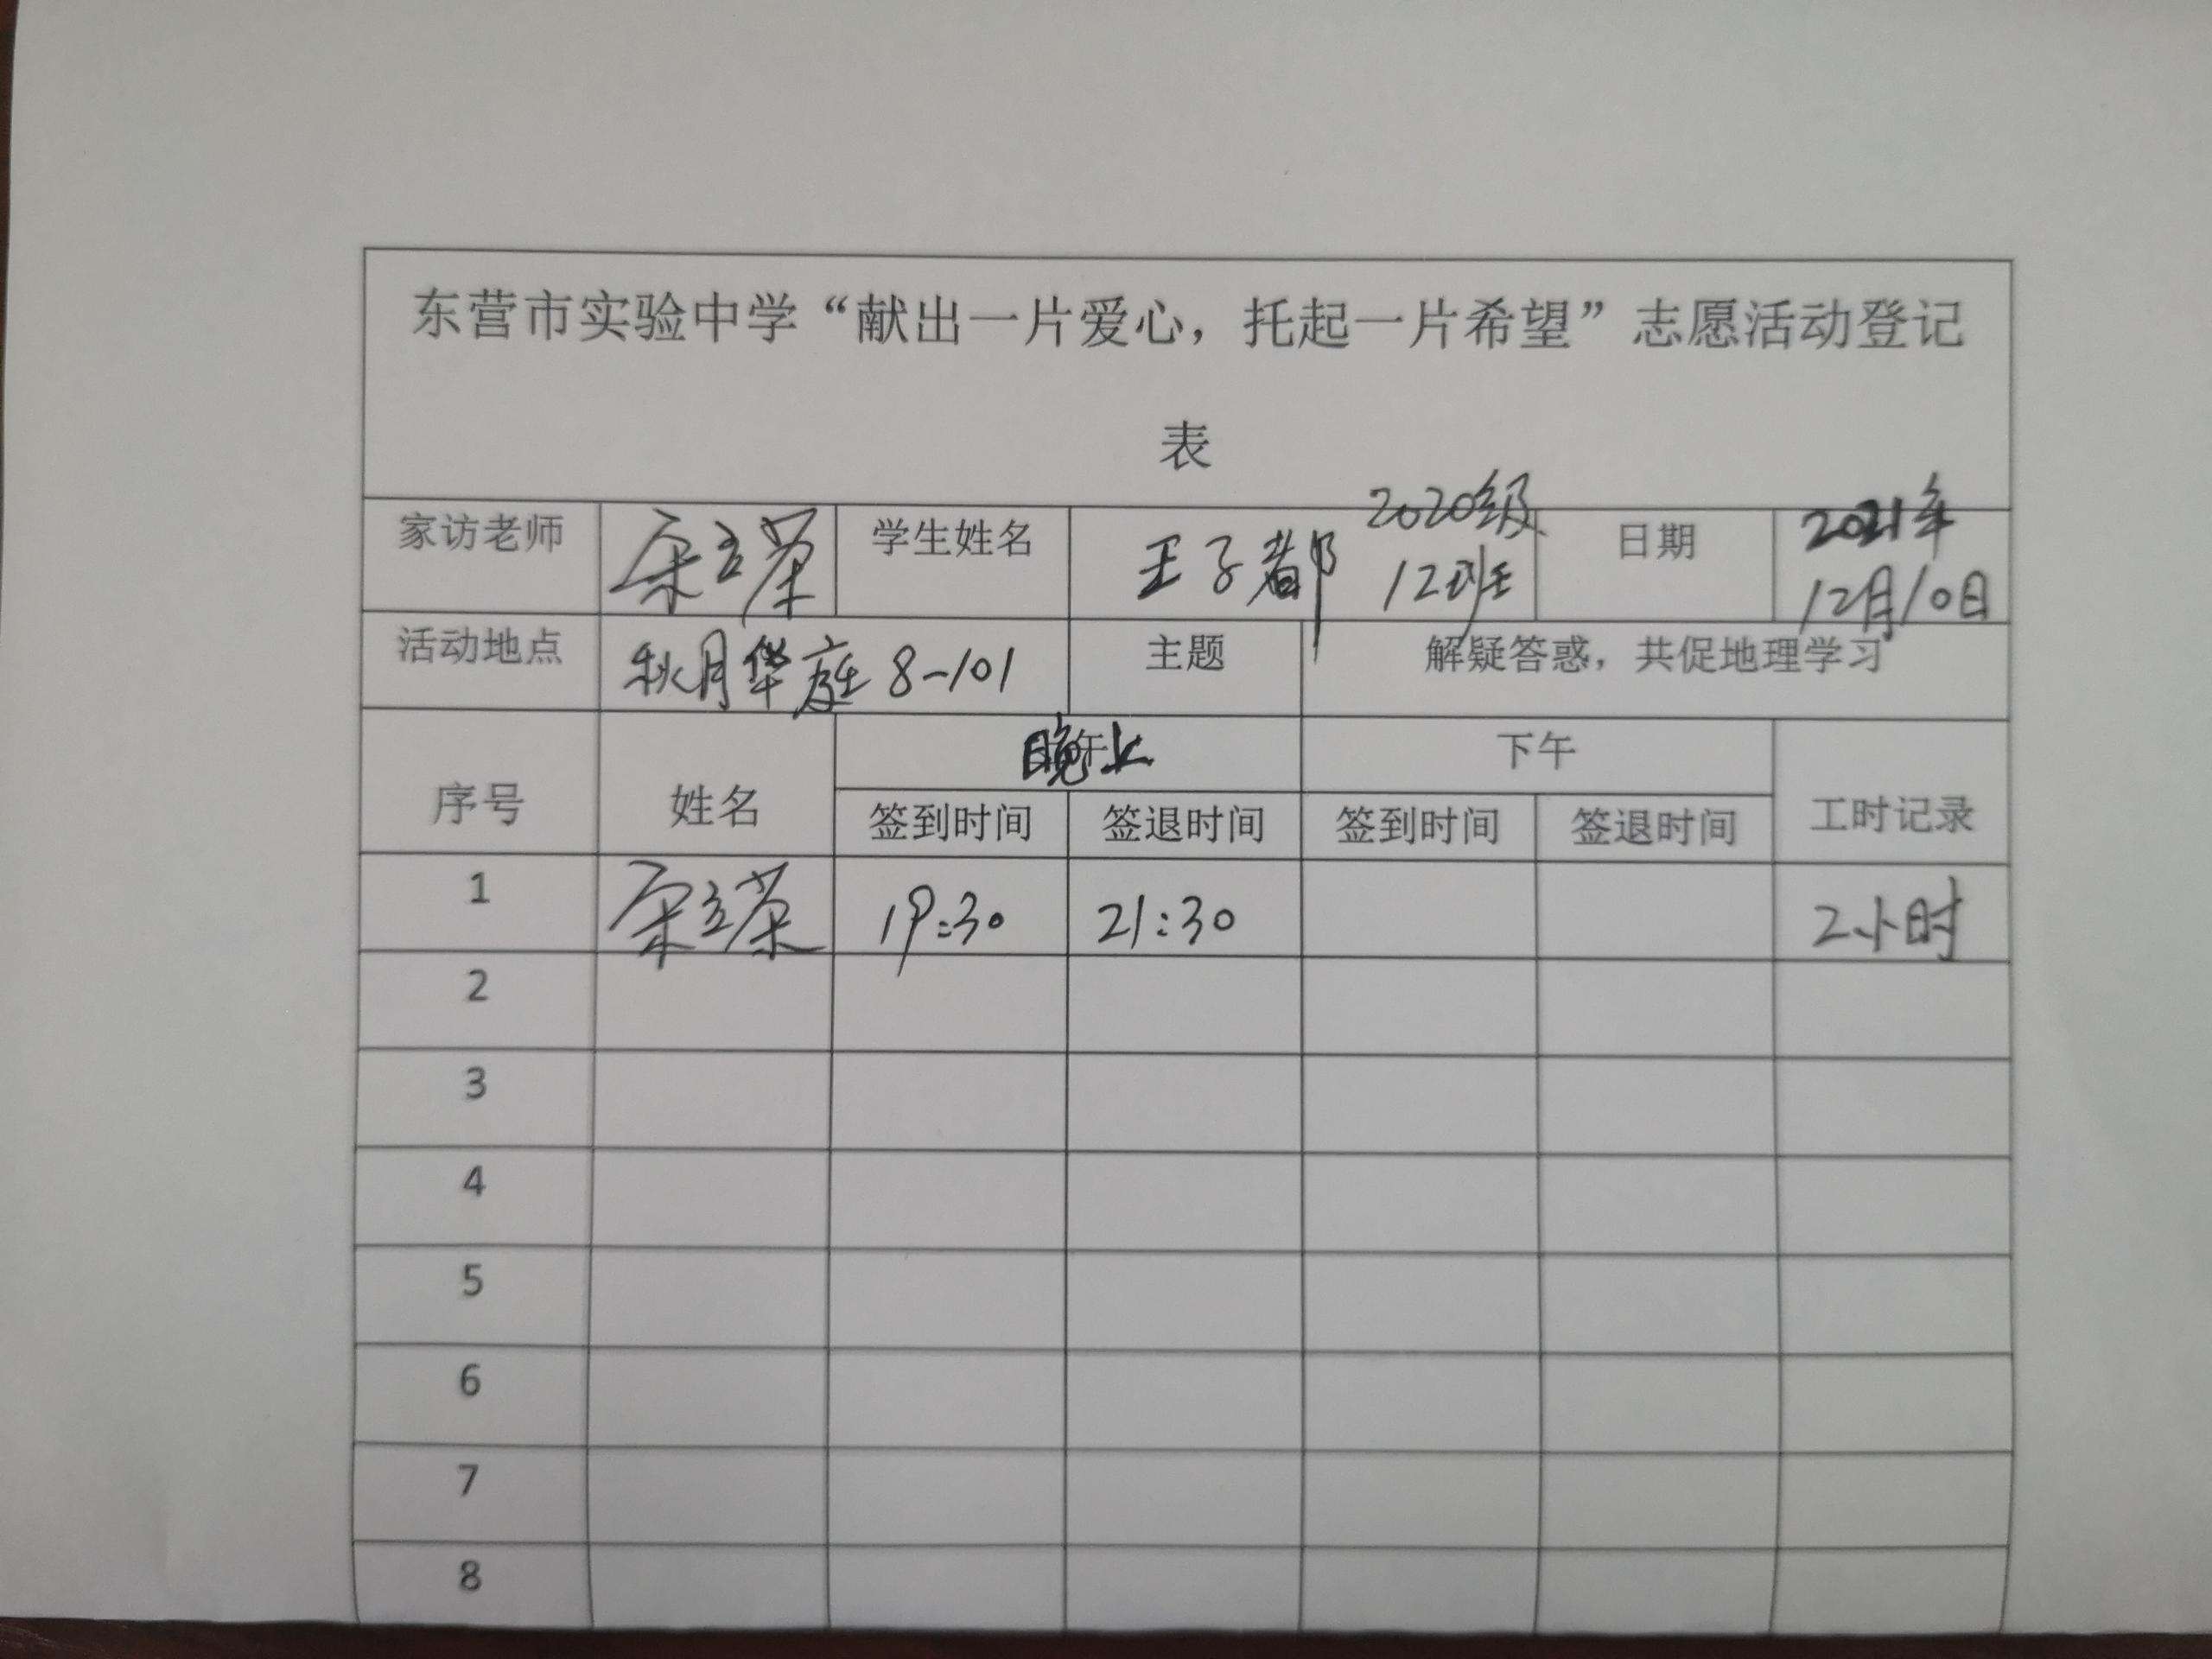 东营市实验中学“献出一片爱心，托起一片希望”志愿活动登记
表
家访老师 宋立荣 学生姓名 王子都 2020级 12班 日期 2021年 12月10日
活动地点 秋月华庭 8-101 主题 解疑答惑，共促地理学习
序号 姓名 晚上 下午 工时记录
签到时间 签退时间 签到时间 签退时间
1 宋立荣 19:30 21:30 2小时
2
3
4
5
6
7
8